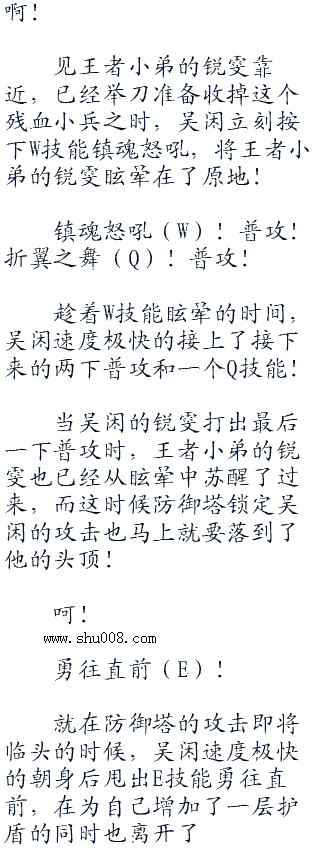 啊！
见王者小弟的锐雯靠
近，已经举刀准备收掉这个
残血小兵之时，吴闲立刻按
下W技能镇魂怒吼，将王者小
弟的锐雯眩晕在了原地！
镇魂怒吼（W）！普攻！
折翼之舞（Q）！普攻！
趁着W技能眩晕的时间，
吴闲速度极快的接上了接下
来的两下普攻和一个Q技能！
当吴闲的锐雯打出最后
一下普攻时，王者小弟的锐
雯也已经从眩晕中苏醒了过
来，而这时候防御塔锁定吴
闲的攻击也马上就要落到了
他的头顶！
呵！
www.shu008.com
勇往直前（E）！
就在防御塔的攻击即将
临头的时候，吴闲速度极快
的朝身后甩出E技能勇往直
前，在为自己增加了一层护
盾的同时也离开了